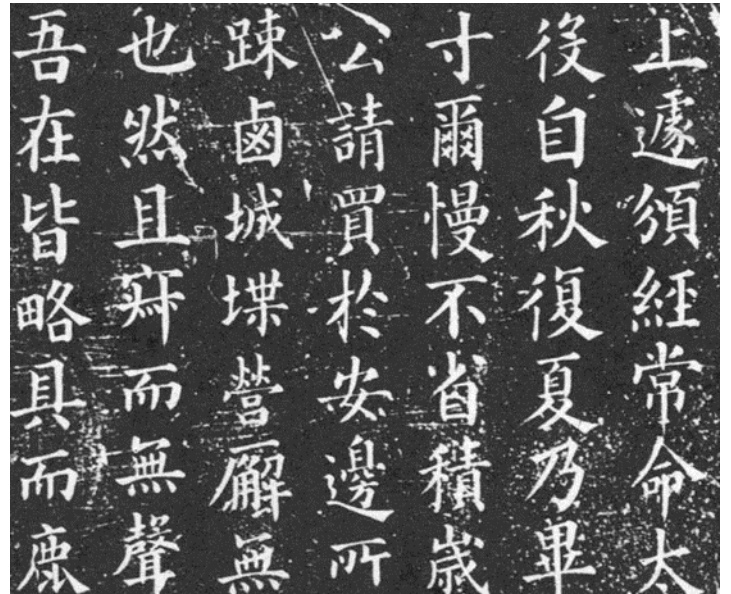 上遽頒經常命太
役自秋復夏乃畢
寸爾慢不省積歲
公請買於安邊所
踈鹵城堞營廨無
也然且而無聲
吾在皆略具而